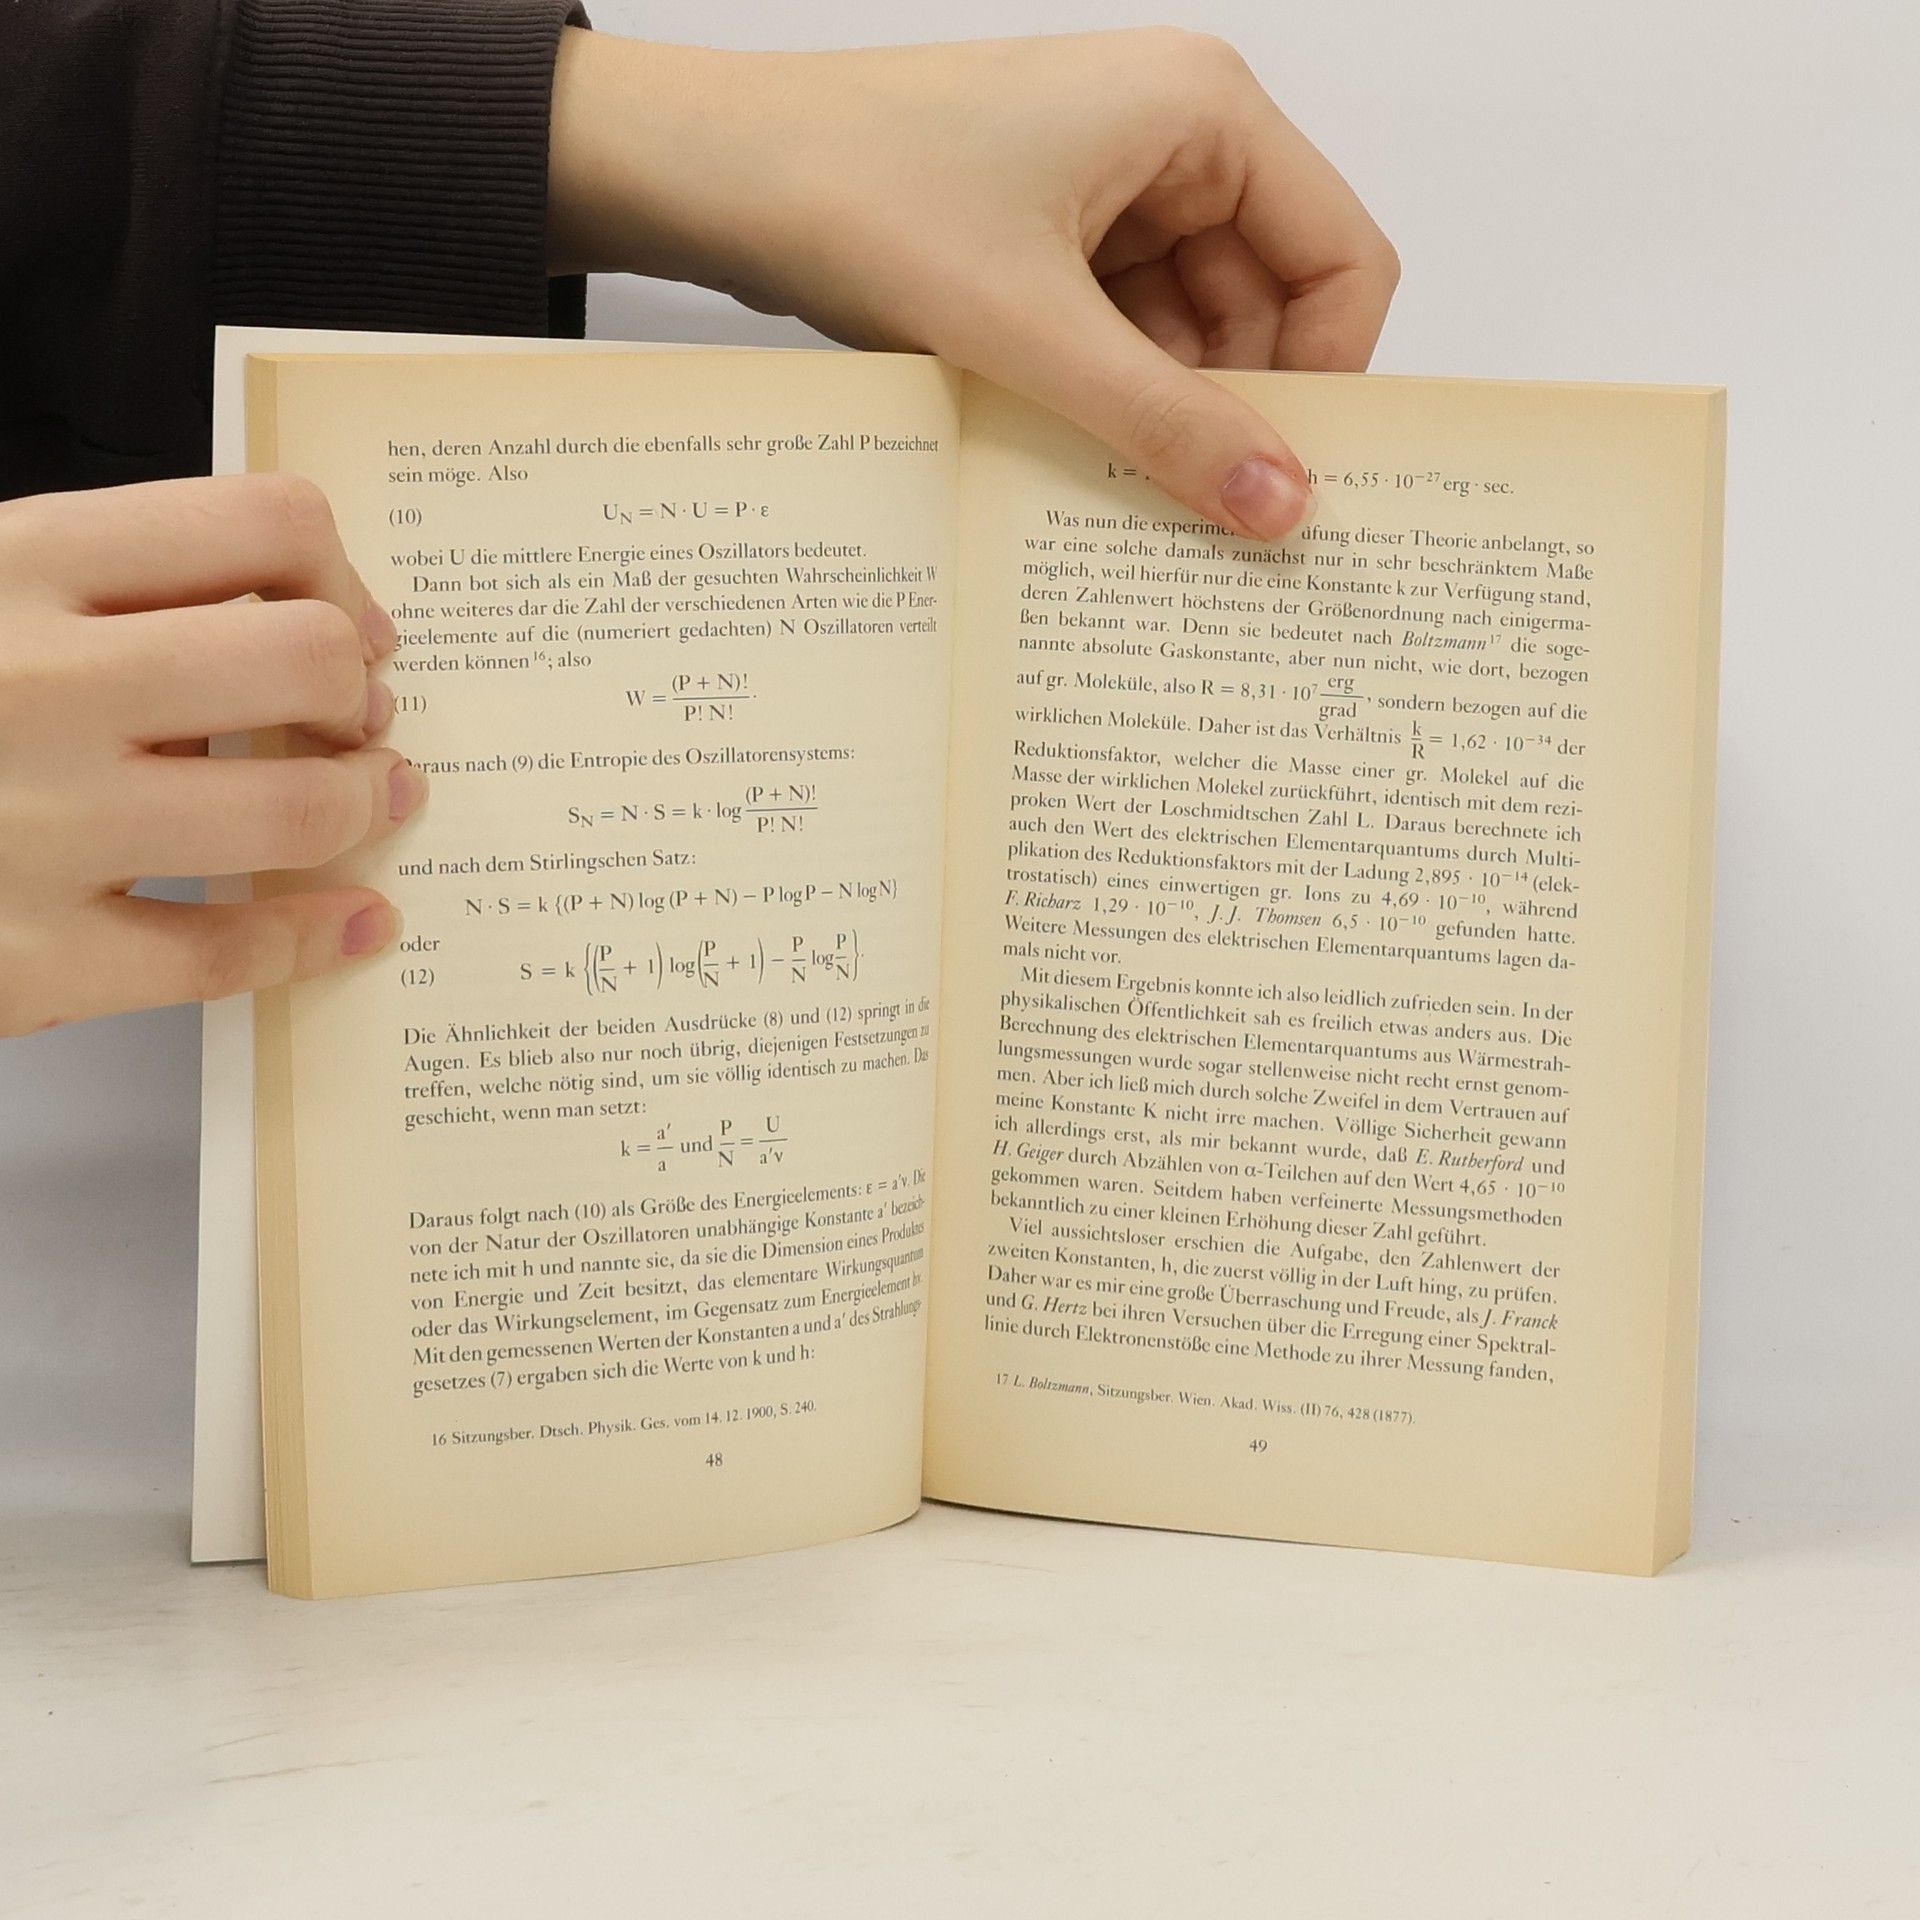 hen, deren Anzahl durch die ebenfalls sehr große Zahl P bezeichnet
sein möge. Also
(10) U_N = N · U = P · ε
wobei U die mittlere Energie eines Oszillators bedeutet.
Dann bot sich als ein Maß der gesuchten Wahrscheinlichkeit W
ohne weiteres dar die Zahl der verschiedenen Arten wie die P Ener-
gieelemente auf die (numeriert gedachten) N Oszillatoren verteilt
werden können ¹⁶; also
(11) W = (P + N)! / P! N! .
Daraus nach (9) die Entropie des Oszillatorensystems:
S_N = N · S = k · log (P + N)! / P! N!
und nach dem Stirlingschen Satz:
N · S = k {(P + N) log (P + N) − P log P − N log N}
oder
(12) S = k {(P/N + 1) log (P/N + 1) − P/N log P/N}.
Die Ähnlichkeit der beiden Ausdrücke (8) und (12) springt in die
Augen. Es blieb also nur noch übrig, diejenigen Festsetzungen zu
treffen, welche nötig sind, um sie völlig identisch zu machen. Das
geschicht, wenn man setzt:
k = a′/a und P/N = U/a′ν
Daraus folgt nach (10) als Größe des Energieelements: ε = a′ν. Die
von der Natur der Oszillatoren unabhängige Konstante a′ bezeich-
nete ich mit h und nannte sie, da sie die Dimension eines Produktes
von Energie und Zeit besitzt, das elementare Wirkungsquantum
oder das Wirkungselement, im Gegensatz zum Energieelement hν.
Mit den gemessenen Werten der Konstanten a und a′ des Strahlungs-
gesetzes (7) ergaben sich die Werte von k und h:
16 Sitzungsber. Dtsch. Physik. Ges. vom 14. 12. 1900, S. 240.
48
k = h = 6,55 · 10⁻²⁷ erg · sec.
Was nun die dieser Theorie anbelangt, so
war eine solche damals zunächst nur in sehr beschränktem Maße
möglich, weil hierfür nur die eine Konstante k zur Verfügung stand,
deren Zahlenwert höchstens der Größenordnung nach einigerma-
ßen bekannt war. Denn sie bedeutet nach Boltzmann ¹⁷ die soge-
nannte absolute Gaskonstante, aber nun nicht, wie dort, bezogen
auf gr. Moleküle, also R = 8,31 · 10⁷ erg/grad, sondern bezogen auf die
wirklichen Moleküle. Daher ist das Verhältnis k/R = 1,62 · 10⁻³⁴ der
Reduktionsfaktor, welcher die Masse einer gr. Molekel auf die
Masse der wirklichen Molekel zurückführt, identisch mit dem rezi-
proken Wert der Loschmidtschen Zahl L. Daraus berechnete ich
auch den Wert des elektrischen Elementarquantums durch Multi-
plikation des Reduktionsfaktors mit der Ladung 2,895 · 10⁻¹⁴ (elek-
trostatisch) eines einwertigen gr. Ions zu 4,69 · 10⁻¹⁰, während
F. Richarz 1,29 · 10⁻¹⁰, J. J. Thomsen 6,5 · 10⁻¹⁰ gefunden hatte.
Weitere Messungen des elektrischen Elementarquantums lagen da-
mals nicht vor.
Mit diesem Ergebnis konnte ich also leidlich zufrieden sein. In der
physikalischen Öffentlichkeit sah es freilich etwas anders aus. Die
Berechnung des elektrischen Elementarquantums aus Wärmestrah-
lungsmessungen wurde sogar stellenweise nicht recht ernst genom-
men. Aber ich ließ mich durch solche Zweifel in dem Vertrauen auf
meine Konstante K nicht irre machen. Völlige Sicherheit gewann
ich allerdings erst, als mir bekannt wurde, daß E. Rutherford und
H. Geiger durch Abzählen von α-Teilchen auf den Wert 4,65 · 10⁻¹⁰
gekommen waren. Seitdem haben verfeinerte Messungsmethoden
bekanntlich zu einer kleinen Erhöhung dieser Zahl geführt.
Viel aussichtsloser erschien die Aufgabe, den Zahlenwert der
zweiten Konstanten, h, die zuerst völlig in der Luft hing, zu prüfen.
Daher war es mir eine große Überraschung und Freude, als J. Franck
und G. Hertz bei ihren Versuchen über die Erregung einer Spektral-
linie durch Elektronenstöße eine Methode zu ihrer Messung fanden,
17 L. Boltzmann, Sitzungsber. Wien. Akad. Wiss. (II) 76, 428 (1877).
49